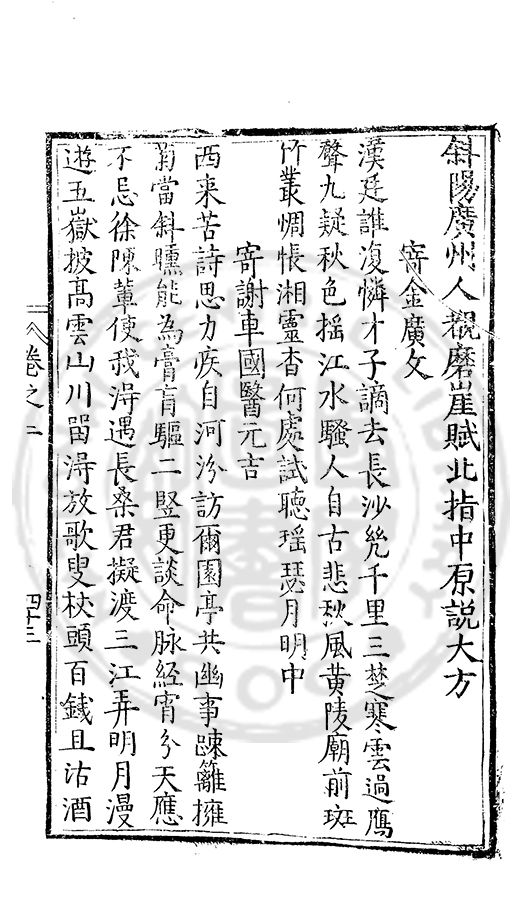 斜陽廣州人覩磨崖賦北指中原説大方
寄金廣文
漢廷誰復憐才子謫去長沙㡬千里三楚寒雲過鴈
聲九疑秋色揺江水騷人自古悲秋風黄陵廟前斑
竹叢惆悵湘靈杳何處試聴瑶瑟月明中
寄謝車國醫元吉
西来苦詩思力疾自河汾訪爾園亭共幽事踈籬擁
菊當斜曛能為膏肓驅二豎更談命脉經宵分天應
不忌徐陳輩使我得遇長桑君擬渡三江弄明月漫
遊五嶽披髙雲山川留得放歌叟杖頭百錢且沽酒
卷之二
四十三